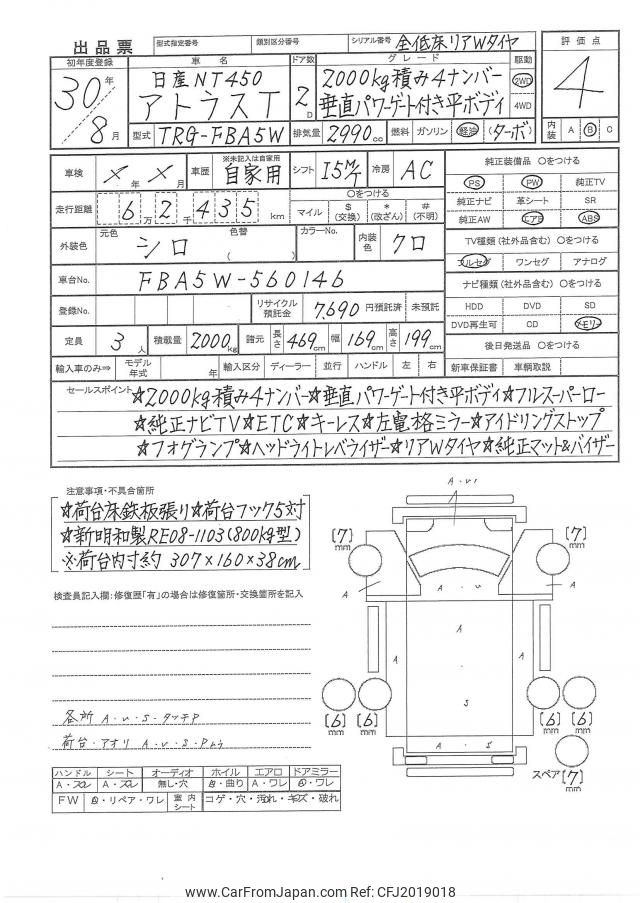 出品票 型式指定番号 類別区分番号 シリアル番号 全低床リアWタイヤ
初年度登録 車名 ドア数 グレード 駆動 評価点
30年 8月
日産NT450 アトラスT
2D
2000kg積み4ナンバー
垂直パワーゲート付き平ボディ
2WD
4WD
4
型式 TRG-FBA5W 排気量 2990cc 燃料 ガソリン 軽油 (ターボ) 内装 A B C
車検 年 月 車歴 ※未記入は自家用 自家用 シフト I5M/T 冷房 AC
純正装備品 ○をつける
PS PW 純正TV
純正ナビ 革シート SR
純正AW エアB ABS
走行距離 6万2千435km ○をつける
マイル $(交換) *(改ざん) #(不明)
TV種類(社外品含む) ○をつける
フルセグ ワンセグ アナログ
外装色 元色 シロ 色替 ( ) カラーNo. 内装色 クロ
車台No. FBA5W-560146
ナビ種類(社外品含む) ○をつける
HDD DVD SD
DVD再生可 CD メモリー
登録No. リサイクル預託金 7,690 円預託済 未預託
定員 3人 積載量 2000kg 諸元 長さ 469cm 幅 169cm 高さ 199cm
後日発送品 ○をつける
新車保証書 車輌取説
輸入車のみ⇒ モデル年式 年 輸入区分 ディーラー 並行 ハンドル 左 右
セールスポイント ☆2000kg積み4ナンバー☆垂直パワーゲート付き平ボディ☆フルスーパーロー
☆純正ナビTV☆ETC☆キーレス☆左電格ミラー☆アイドリングストップ
☆フォグランプ☆ヘッドライトレベライザー☆リアWタイヤ☆純正マット&バイザー
注意事項・不具合箇所
☆荷台床鉄板張り☆荷台フック5対
☆新明和製RE08-1103(800kg型)
※荷台内寸約 307×160×38cm
検査員記入欄:修復歴「有」の場合は修復箇所・交換箇所を記入
各所 A・U・S・タッチP
荷台・アオリ A・U・S・Pムラ
A・U1
[7]mm [7]mm
A A
A・U
A
A A
S
A・S
[6]mm [6]mm [6]mm [6]mm
スペア[7]mm
ハンドル シート オーディオ ホイル エアロ ドアミラー
A・スレ A・スレ 無し・穴 曲り A・ワレ ワレ
FW リペア・ワレ 室内シート コゲ・穴・汚れ・キズ・破れ
www.CarFromJapan.com Ref: CFJ2019018